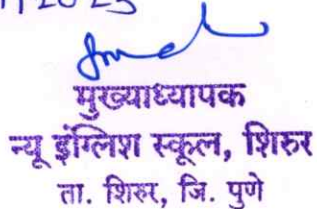 2023
मुख्याध्यापक
न्यू इंग्लिश स्कूल, शिरुर
ता. शिरुर, जि. पुणे